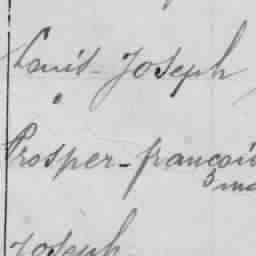 Louis-Joseph
Prosper-françoi
Joseph